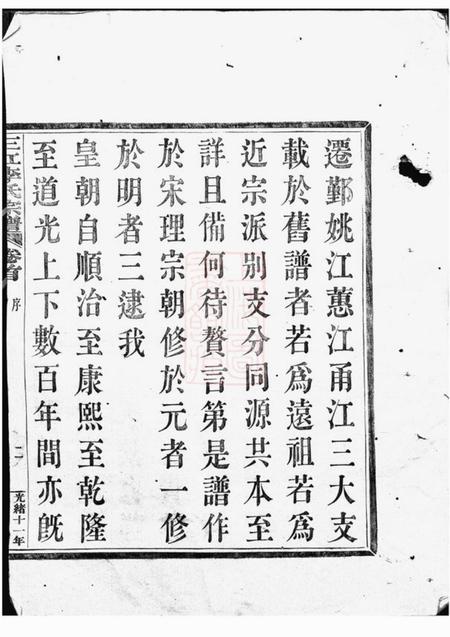 遷鄞姚江蕙江甬江三大支
載於舊譜者若為遠祖若為
近宗派別支分同源共本至
詳且備何待贅言第是譜作
於宋理宗朝修於元者一修
於明者三逮我
皇朝自順治至康熙至乾隆
至道光上下數百年間亦既
三江李氏宗譜 卷首 序 二 光緒十一年